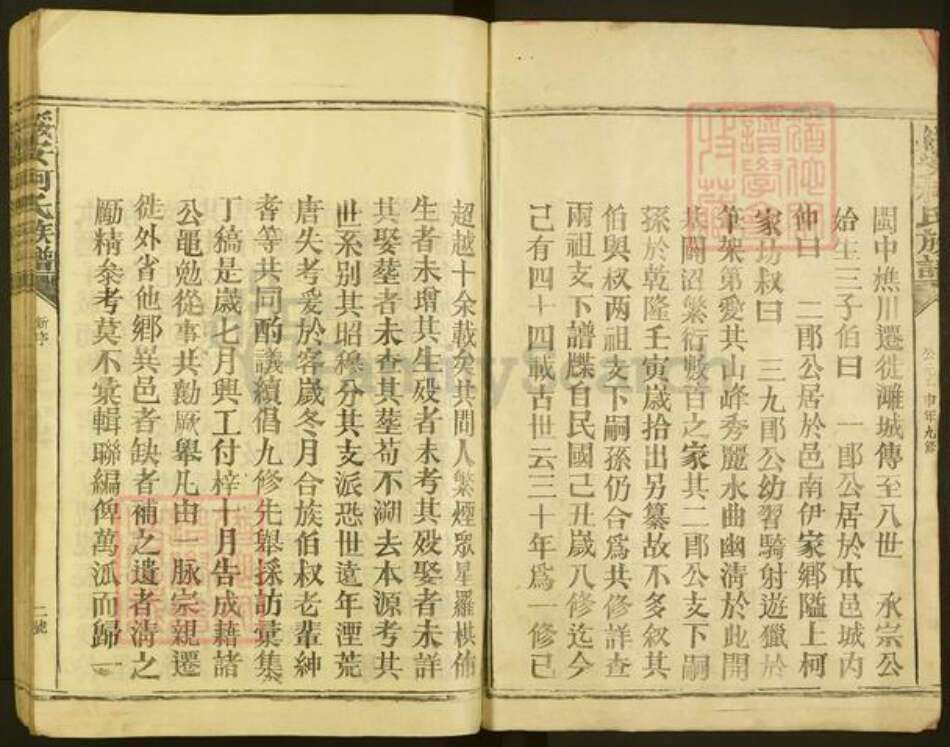 閩中樵川遷徙濉城傳至八世 承宗公
始生三子伯曰 一郎公居於本邑城內
仲曰 二郎公居於邑南伊家鄉隘上柯
家坊叔曰 三九郎公幼習騎射遊獵於
筆架第愛其山峰秀麗水曲幽清於此開
基闢沼繁衍數百之家其二郎公支下嗣
孫於乾隆壬寅歲拾出另纂故不多叙其
伯與叔两祖支下嗣孫仍合為共修詳查
兩祖支下譜牒自民國己丑歲八修迄今
己有四十四載古世云三十年為一修已
超越十余載矣其間人繁煙眾星羅棋佈
生者未增其生殁者未考其殁娶者未詳
其娶塟者未查其塟苟不溯去本源考其
世系别其昭穆分其支派恐世遠年湮荒
唐失考爰於客歲冬月合族伯叔老輩紳
耆等共同酌議續倡九修先舉採訪彙集
丁稿是歲七月興工付梓十月告成藉諸
公黽勉從事共勷厥舉凡由一脉宗親遷
徙外省他鄉異邑者缺者補之遺者清之
勵精參考莫不彙輯聯編俾萬派而歸一
氏族譜
新序
二號